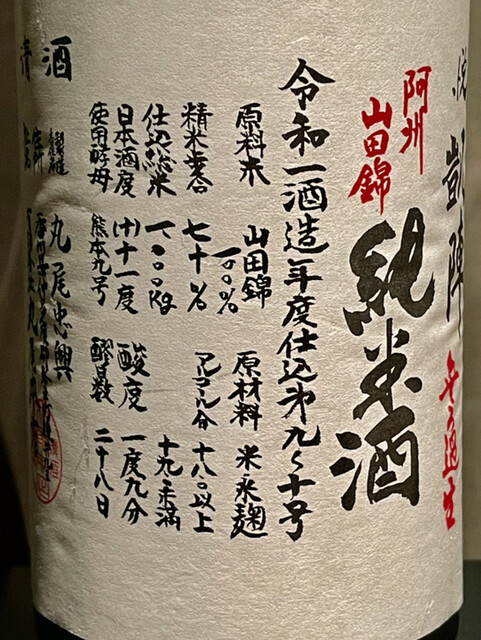 悦凱陣
無ろ過生
阿州
山田錦
純米酒
令和一酒造年度仕込第九〜十号
原料米 山田錦
一〇〇%
原材料 米 米麹
精米歩合 七十%
アルコール分 十八.〇以上
十九.〇未満
仕込総米 一〇〇〇kg
酸度 一度九分
日本酒度 (+)十一度
醪日数 二十八日
使用酵母 熊本九号
清酒
丸尾忠興